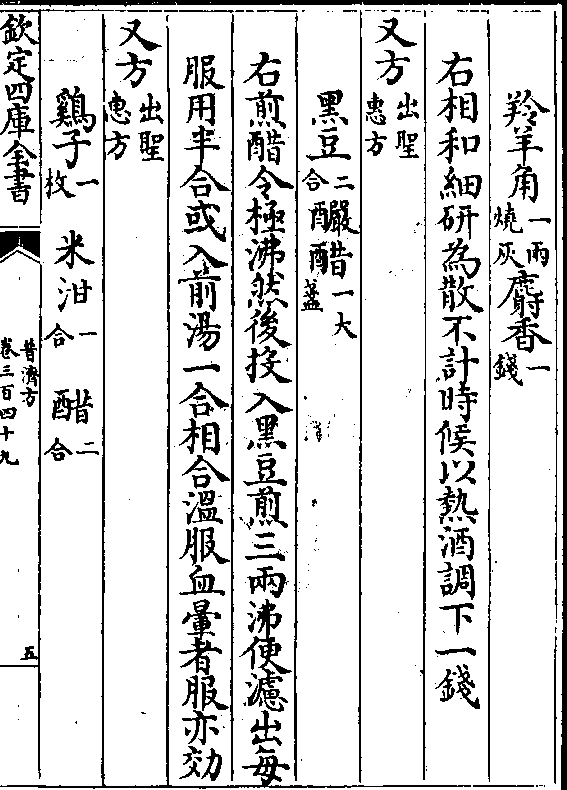 羚羊角一兩燒灰麝香一錢
右相和細研為散不計時候以熱酒調下一錢
又方出聖惠方
黑豆二合釅醋一大盞
右煎醋令極沸然後投入黑豆煎三兩沸便濾出每
服用半合或入前湯一合相合溫服血暈者服亦効
又方出聖惠方
鷄子一枚米泔一合醋二合
欽定四庫全書
普濟方
卷三百四十九
五